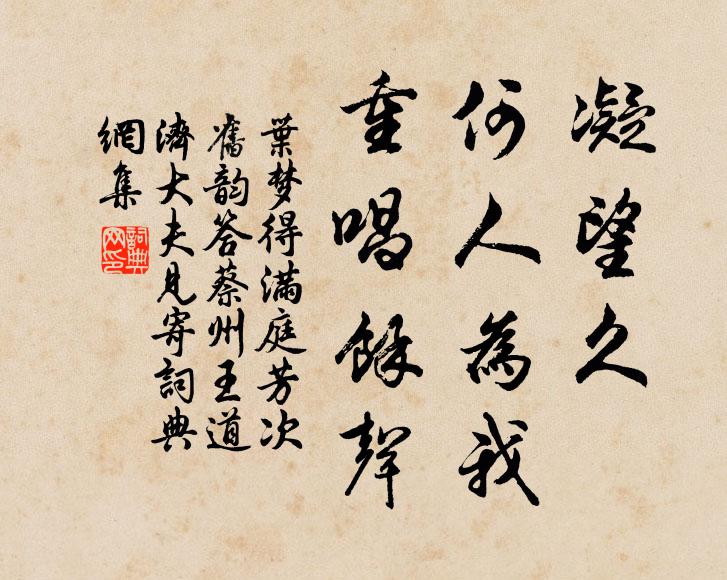 凝望久
何人為我
重唱餘聲
葉梦得滿庭芳次
舊韵答蔡州王道
濟大夫見寄詞典
網集
詞典
网印